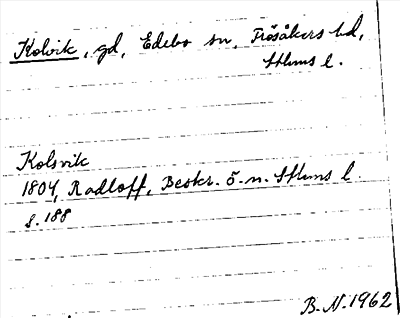 Kolvik, gd, Edebo sn, Frösåkers hd,
Sthms l.
Kolsvik
1804, Radloff, Beskr. ö. n. Sthms l.
s. 188
B. N. 1962